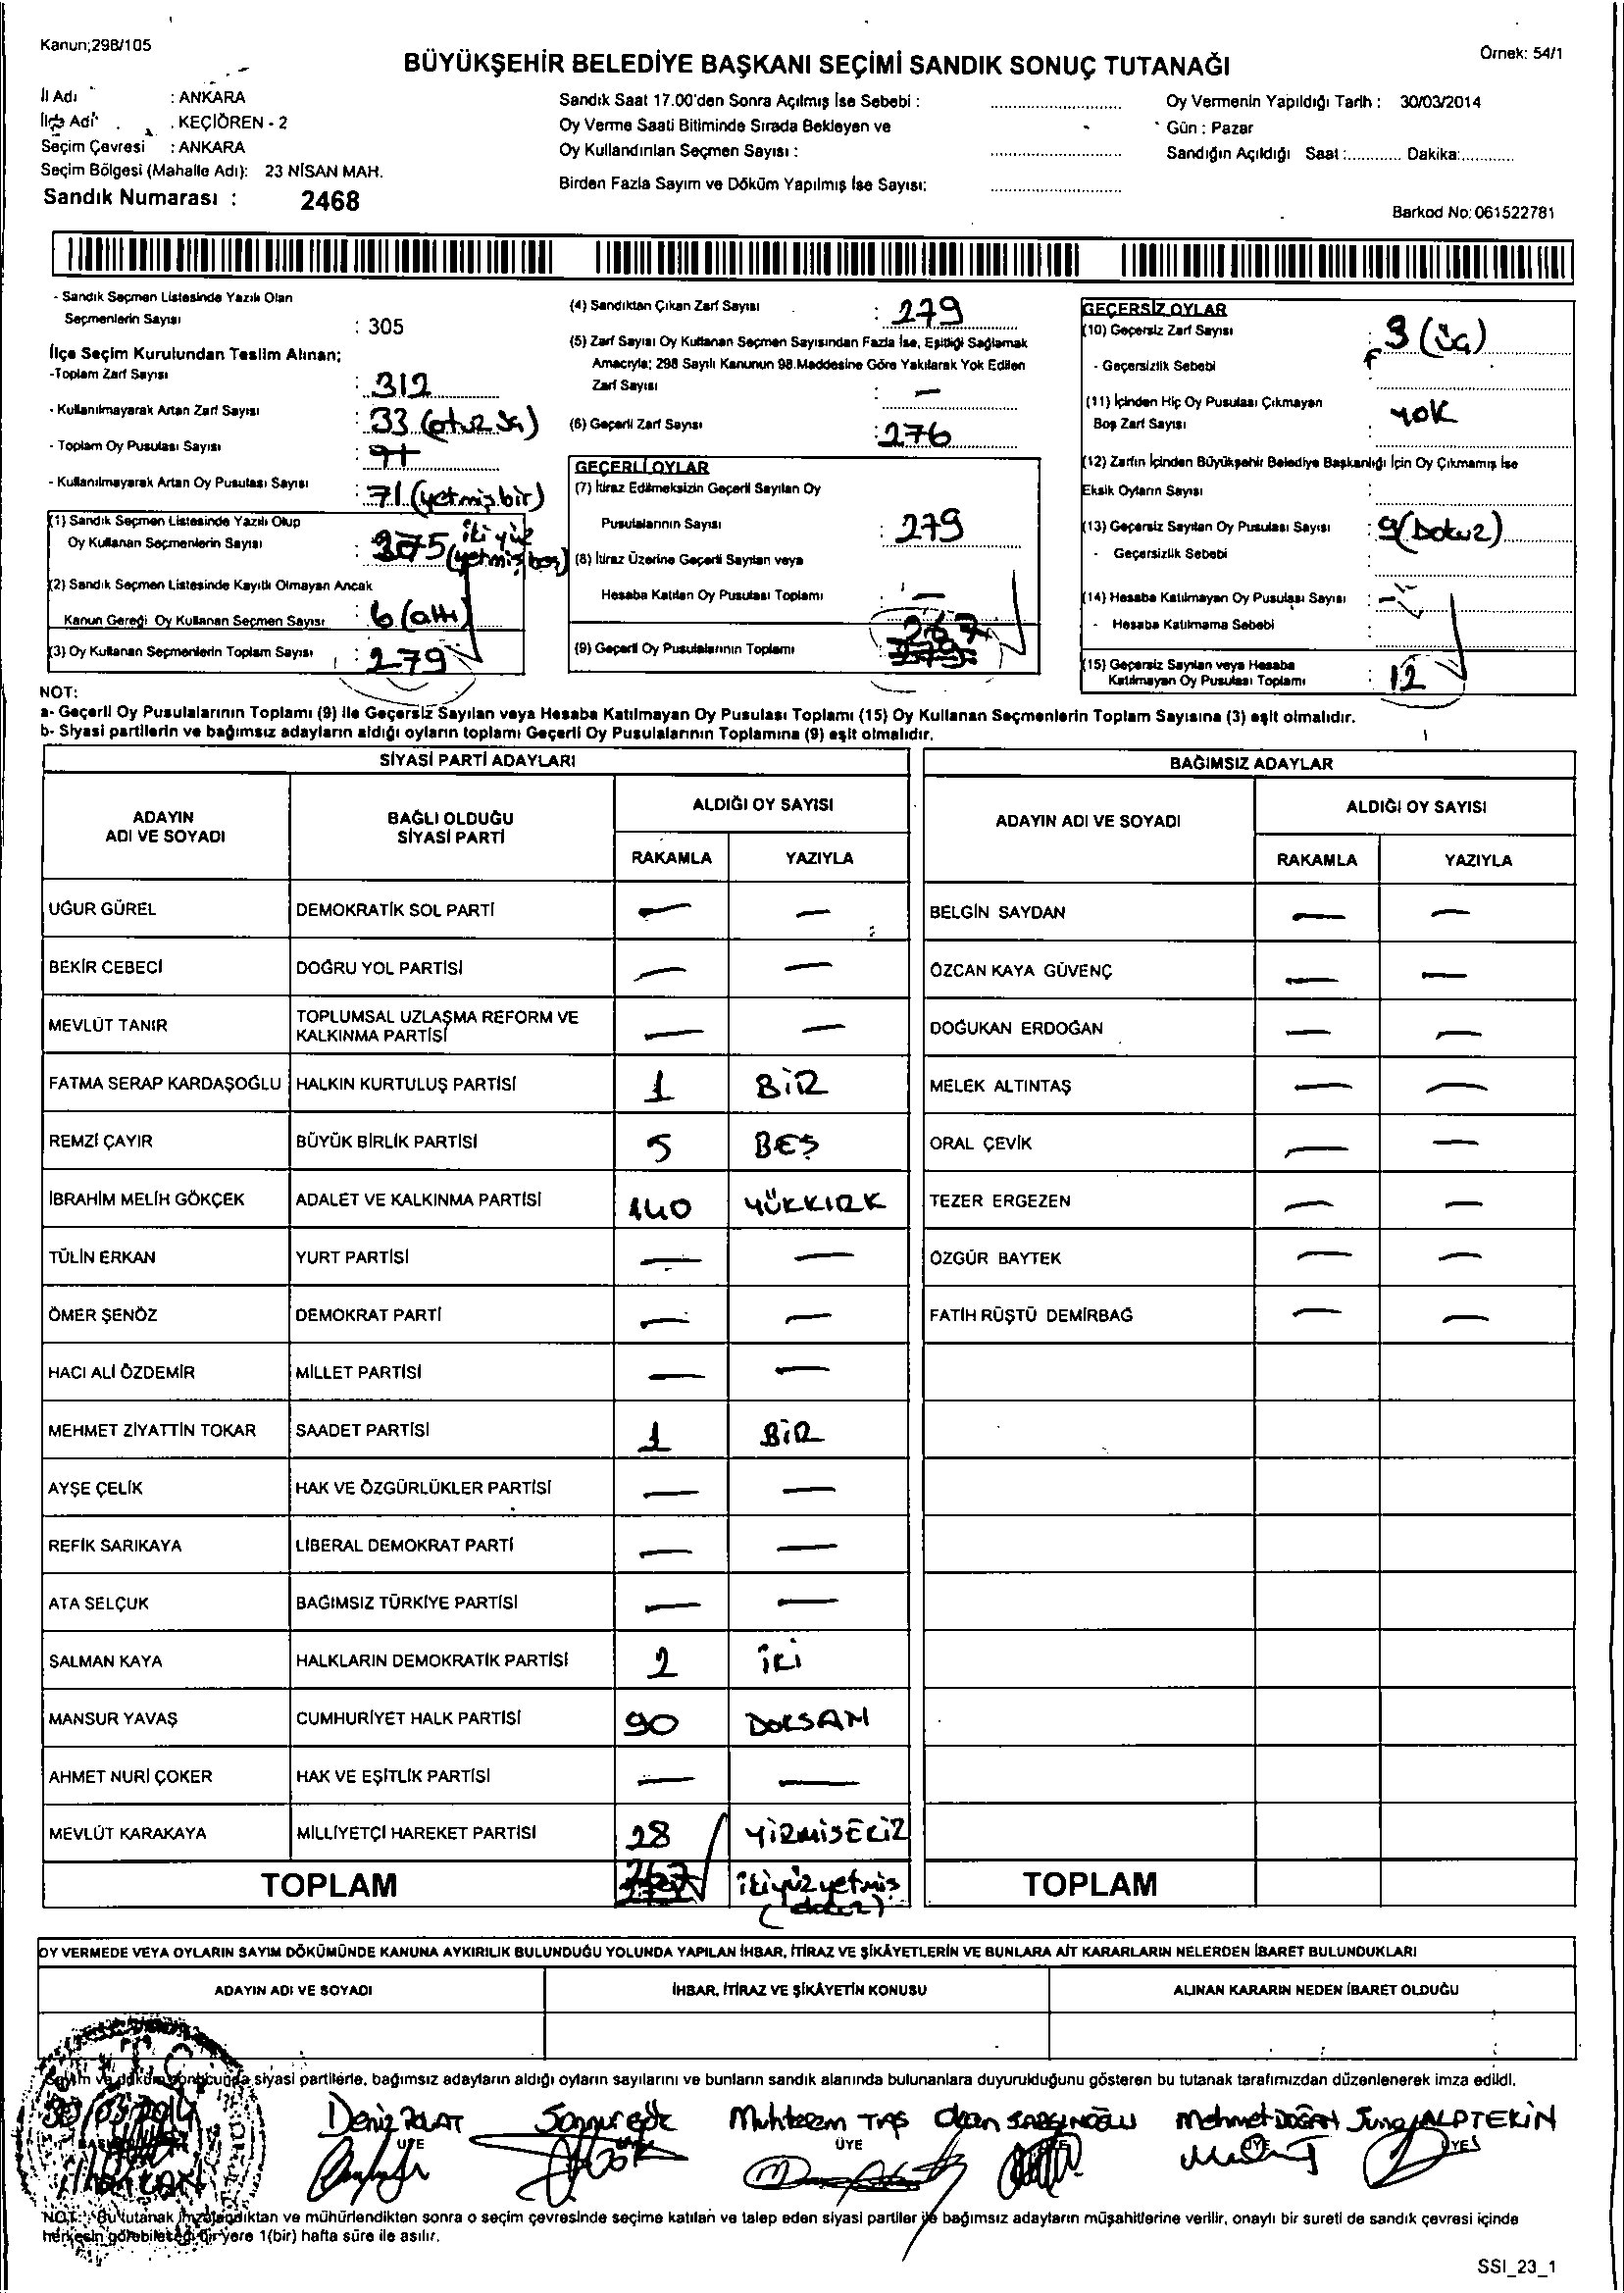 Kanun;298/105
Örnek: 54/1
BÜYÜKŞEHİR BELEDİYE BAŞKANI SEÇİMİ SANDIK SONUÇ TUTANAĞI
İl Adı : ANKARA
İlçe Adı : KEÇİÖREN - 2
Seçim Çevresi : ANKARA
Seçim Bölgesi (Mahalle Adı): 23 NİSAN MAH.
Sandık Numarası : 2468
Sandık Saat 17.00'den Sonra Açılmış İse Sebebi :
Oy Verme Saati Bitiminde Sırada Bekleyen ve
Oy Kullandırılan Seçmen Sayısı :
Birden Fazla Sayım ve Döküm Yapılmış İse Sayısı:
Oy Vermenin Yapıldığı Tarih : 30/03/2014
Gün : Pazar
Sandığın Açıldığı Saat :............ Dakika:............
Barkod No: 061522781
- Sandık Seçmen Listesinde Yazılı Olan
Seçmenlerin Sayısı : 305
İlçe Seçim Kurulundan Teslim Alınan;
-Toplam Zarf Sayısı : 312
- Kullanılmayarak Artan Zarf Sayısı : 33 (otuz üç)
- Toplam Oy Pusulası Sayısı :
- Kullanılmayarak Artan Oy Pusulası Sayısı : 71 (yetmiş bir)
(1) Sandık Seçmen Listesinde Yazılı Olup
Oy Kullanan Seçmenlerin Sayısı : iki yüz (yetmiş beş)
(2) Sandık Seçmen Listesinde Kayıtlı Olmayan Ancak
Kanun Gereği Oy Kullanan Seçmen Sayısı : 6 (altı)
(3) Oy Kullanan Seçmenlerin Toplam Sayısı : 279
(4) Sandıktan Çıkan Zarf Sayısı : 279
(5) Zarf Sayısı Oy Kullanan Seçmen Sayısından Fazla İse, Eşitliği Sağlamak
Amacıyla; 298 Sayılı Kanunun 98.Maddesine Göre Yakılarak Yok Edilen
Zarf Sayısı : —
(6) Geçerli Zarf Sayısı : 276
GEÇERLİ OYLAR
(7) İtiraz Edilmeksizin Geçerli Sayılan Oy
Pusulalarının Sayısı : 279
(8) İtiraz Üzerine Geçerli Sayılan veya
Hesaba Katılan Oy Pusulası Toplamı : —
(9) Geçerli Oy Pusulalarının Toplamı 267
GEÇERSİZ OYLAR
(10) Geçersiz Zarf Sayısı : 3 (üç)
- Geçersizlik Sebebi :
(11) İçinden Hiç Oy Pusulası Çıkmayan
Boş Zarf Sayısı : YOK
(12) Zarfın İçinden Büyükşehir Belediye Başkanlığı İçin Oy Çıkmamış İse
Eksik Oyların Sayısı :
(13) Geçersiz Sayılan Oy Pusulası Sayısı : 9 (Dokuz)
- Geçersizlik Sebebi :
(14) Hesaba Katılmayan Oy Pusulası Sayısı : —
- Hesaba Katılmama Sebebi :
(15) Geçersiz Sayılan veya Hesaba
Katılmayan Oy Pusulası Toplamı : 12
NOT:
a- Geçerli Oy Pusulalarının Toplamı (9) ile Geçersiz Sayılan veya Hesaba Katılmayan Oy Pusulası Toplamı (15) Oy Kullanan Seçmenlerin Toplam Sayısına (3) eşit olmalıdır.
b- Siyasi partilerin ve bağımsız adayların aldığı oyların toplamı Geçerli Oy Pusulalarının Toplamına (9) eşit olmalıdır.
SİYASİ PARTİ ADAYLARI
ADAYIN ADI VE SOYADI
BAĞLI OLDUĞU SİYASİ PARTİ
ALDIĞI OY SAYISI
RAKAMLA YAZIYLA
UĞUR GÜREL DEMOKRATİK SOL PARTİ — —
BEKİR CEBECİ DOĞRU YOL PARTİSİ — —
MEVLÜT TANIR TOPLUMSAL UZLAŞMA REFORM VE KALKINMA PARTİSİ — —
FATMA SERAP KARDAŞOĞLU HALKIN KURTULUŞ PARTİSİ 1 BİR
REMZİ ÇAYIR BÜYÜK BİRLİK PARTİSİ 5 BEŞ
İBRAHİM MELİH GÖKÇEK ADALET VE KALKINMA PARTİSİ 140 YÜKKIRK
TÜLİN ERKAN YURT PARTİSİ — —
ÖMER ŞENÖZ DEMOKRAT PARTİ — —
HACI ALİ ÖZDEMİR MİLLET PARTİSİ — —
MEHMET ZİYATTİN TOKAR SAADET PARTİSİ 1 BİR
AYŞE ÇELİK HAK VE ÖZGÜRLÜKLER PARTİSİ — —
REFİK SARIKAYA LİBERAL DEMOKRAT PARTİ — —
ATA SELÇUK BAĞIMSIZ TÜRKİYE PARTİSİ — —
SALMAN KAYA HALKLARIN DEMOKRATİK PARTİSİ 2 İKİ
MANSUR YAVAŞ CUMHURİYET HALK PARTİSİ 90 DOKSAN
AHMET NURİ ÇOKER HAK VE EŞİTLİK PARTİSİ — —
MEVLÜT KARAKAYA MİLLİYETÇİ HAREKET PARTİSİ 28 YİRMİSEKİZ
TOPLAM 267 ikiyüz yetmiş
BAĞIMSIZ ADAYLAR
ADAYIN ADI VE SOYADI
ALDIĞI OY SAYISI
RAKAMLA YAZIYLA
BELGİN SAYDAN — —
ÖZCAN KAYA GÜVENÇ — —
DOĞUKAN ERDOĞAN — —
MELEK ALTINTAŞ — —
ORAL ÇEVİK — —
TEZER ERGEZEN — —
ÖZGÜR BAYTEK — —
FATİH RÜŞTÜ DEMİRBAĞ — —
TOPLAM
OY VERMEDE VEYA OYLARIN SAYIM DÖKÜMÜNDE KANUNA AYKIRILIK BULUNDUĞU YOLUNDA YAPILAN İHBAR, İTİRAZ VE ŞİKÂYETLERİN VE BUNLARA AİT KARARLARIN NELERDEN İBARET BULUNDUKLARI
ADAYIN ADI VE SOYADI
İHBAR, İTİRAZ VE ŞİKÂYETİN KONUSU
ALINAN KARARIN NEDEN İBARET OLDUĞU
Sayım ve döküm sonucunda siyasi partilerle, bağımsız adayların aldığı oyların sayılarını ve bunların sandık alanında bulunanlara duyurulduğunu gösteren bu tutanak tarafımızdan düzenlenerek imza edildi.
30/03/2014
Deniz POLAT Songur Gök Muhterem TAŞ Mehmet DOĞAN ALPTEKİN
ÜYE ÜYE ÜYE ÜYE
NOT: Bu tutanak imzalandıktan ve mühürlendikten sonra o seçim çevresinde seçime katılan ve talep eden siyasi partiler ile bağımsız adayların müşahitlerine verilir, onaylı bir sureti de sandık çevresi içinde
herkesin görebileceği bir yere 1(bir) hafta süre ile asılır.
SSI_23_1